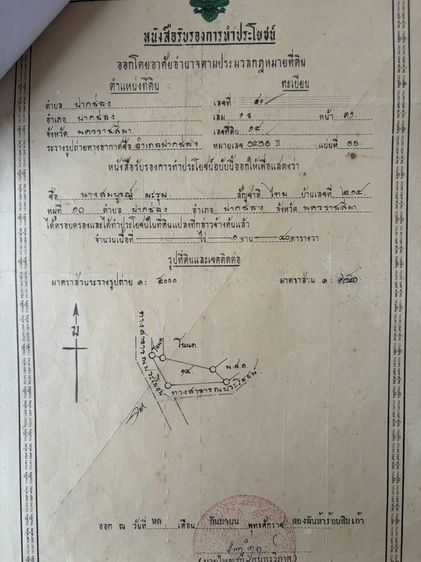 หนังสือรับรองการทำประโยชน์
ออกโดยอาศัยอำนาจตามประมวลกฎหมายที่ดิน
ตำแหน่งที่ดิน ทะเบียน
ตำบล ปากช่อง เลขที่ ๕๑
อำเภอ ปากช่อง เล่ม หน้า ๓๑
จังหวัด นครราชสีมา เลขที่ดิน ๑๕
ระวางรูปถ่ายทางอากาศชื่อ อำเภอปากช่อง หมายเลข 5238 II แผ่นที่ 55
หนังสือรับรองการทำประโยชน์ฉบับนี้ออกให้เพื่อแสดงว่า
ชื่อ นางสมบูรณ์ สัญชาติ ไทย บ้านเลขที่
หมู่ที่ ๑๐ ตำบล ปากช่อง อำเภอ ปากช่อง จังหวัด นครราชสีมา
ได้ครอบครองและได้ทำประโยชน์ในที่ดินแปลงที่กล่าวข้างต้นแล้ว
จำนวนเนื้อที่ ไร่ งาน ตารางวา
รูปที่ดินและเขตติดต่อ
มาตราส่วนระวางรูปถ่าย ๑: ๕๐๐๐ มาตราส่วน ๑:
น
ทางสาธารณประโยชน์
โฉนด
๑๕
น.ส.๓
ทางสาธารณประโยชน์
ออก ณ วันที่ หก เดือน กันยายน พุทธศักราช สองพันห้าร้อยสิบเก้า